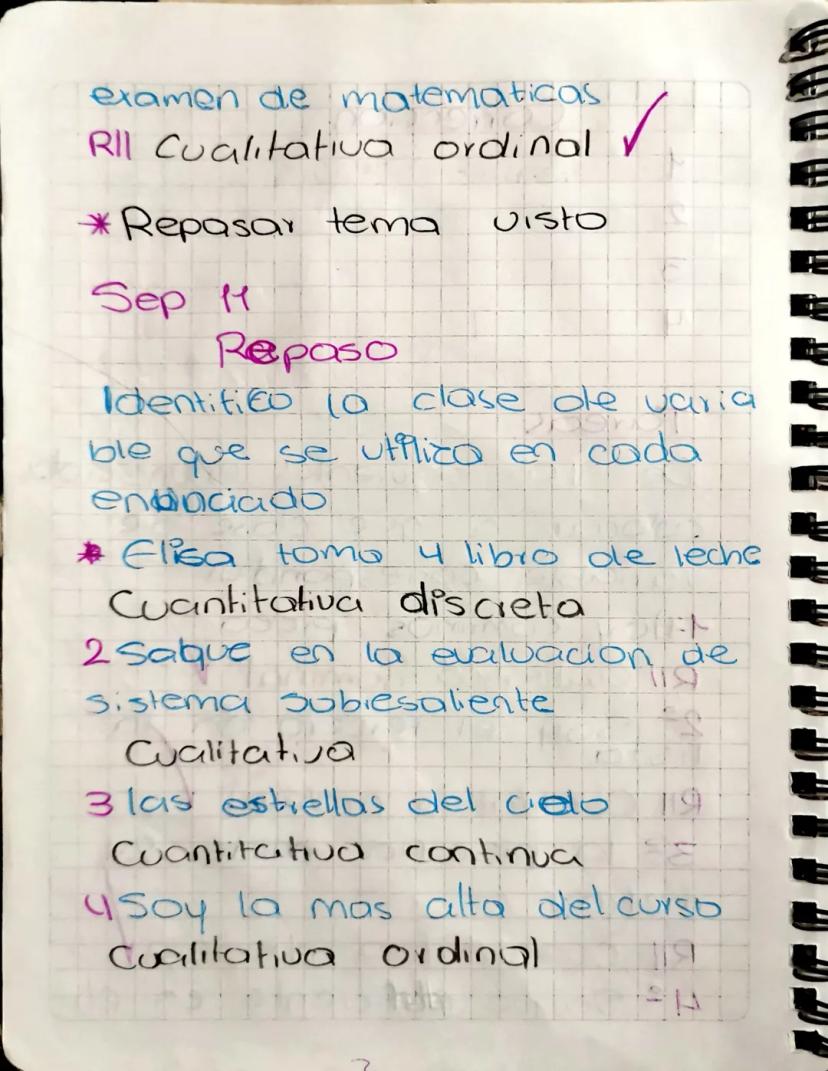 examen de matematicas
R// Cualitativa ordinal ✓
* Repasar tema visto
Sep 11
Repaso
Identifico la clase de varia
ble que se utilizo en cada
enunciado
* Elisa tomo 4 libro de leche
Cuantitativa discreta
2 Saque en la evaluacion de
sistema sobresaliente
Cualitativa
3 las estrellas del cielo
Cuantitativa continua
4 Soy la mas alta del curso
Cualitativa ordinal